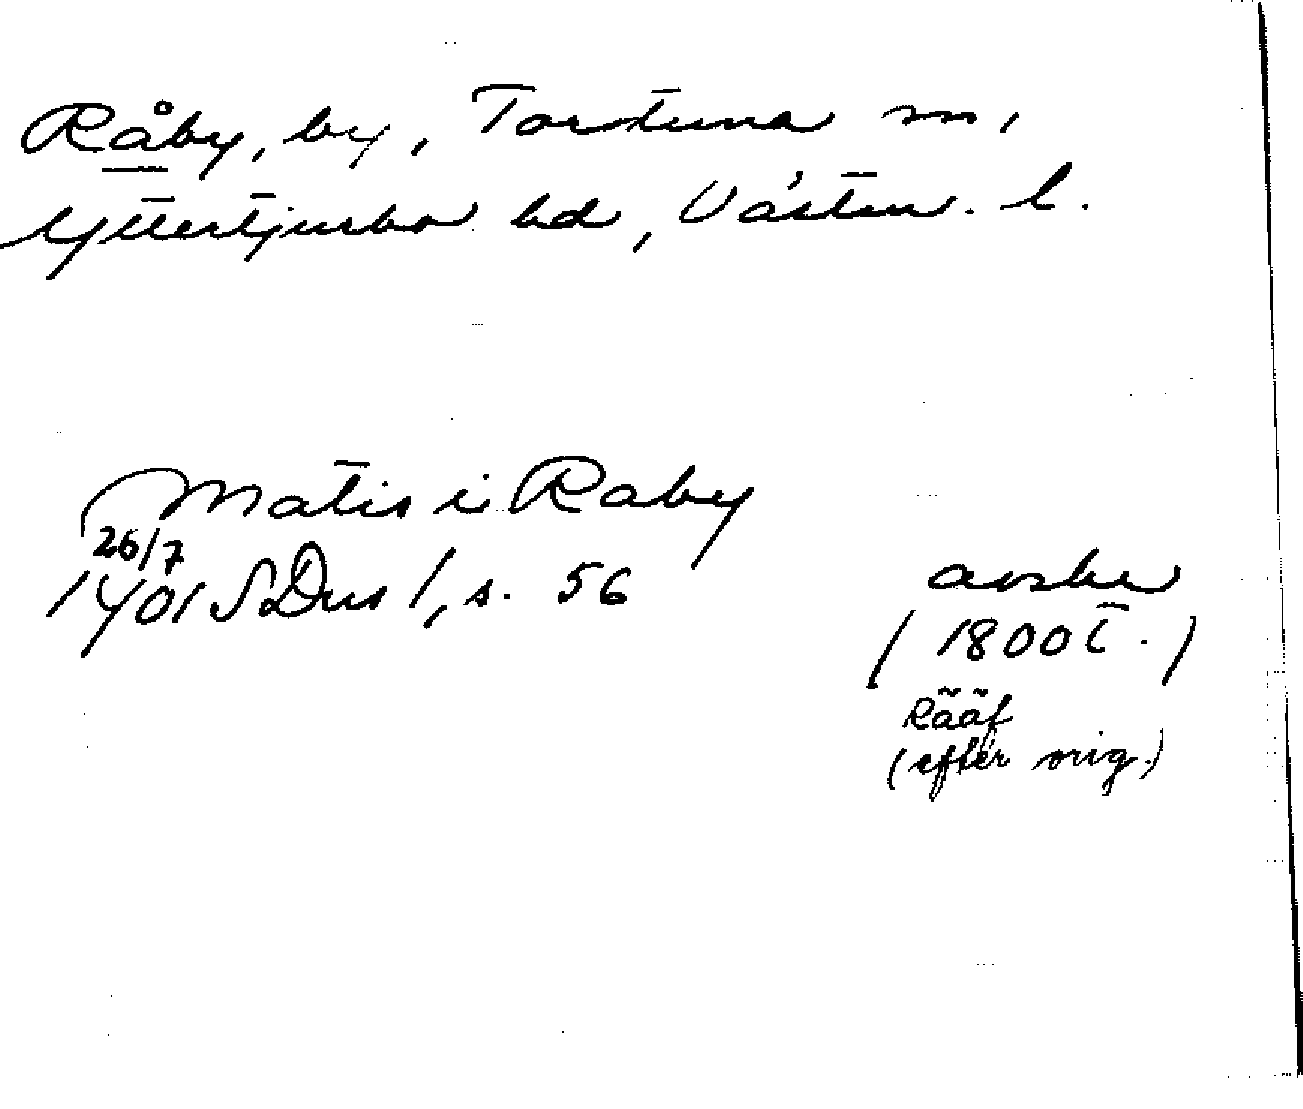 Råby, by, Tortuna sn,
Yttertjurbo hd, Västm. l.
Matis i Raby
26/7
1401 SDns 1, s. 56
avskr
(1800 t.)
Rääf
(efter orig.)